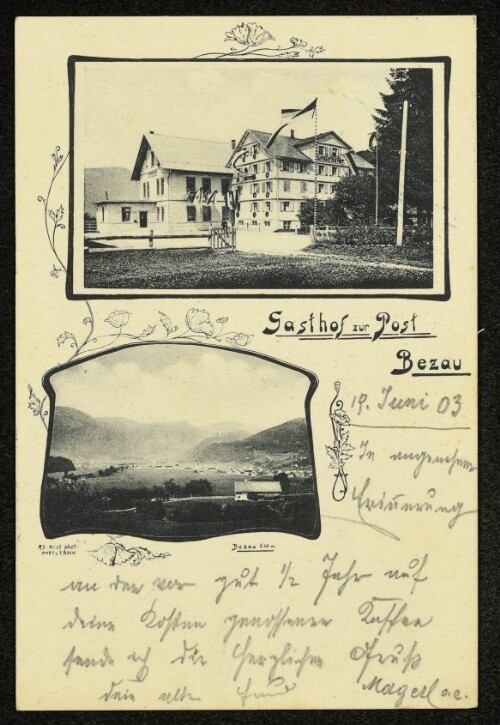 Gasthof zur Post
Bezau
19. Juni 03
In angenehmer
Erinnerung
an den vor gut ½ Jahr auf
deine Kosten genossenen Kaffee
sende ich dir herzlichen Gruß
dein alter Freund
Bezau